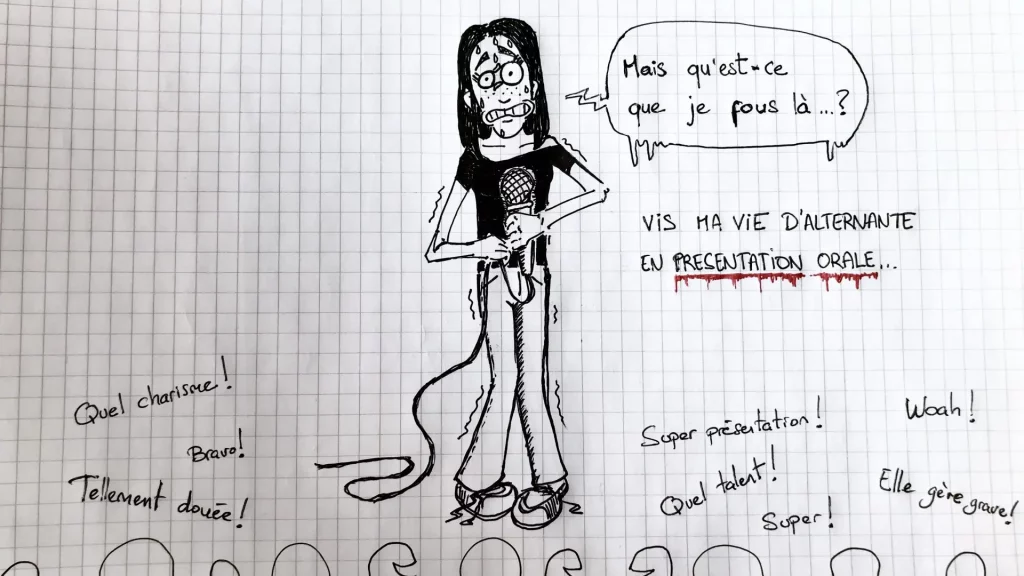 Mais qu'est-ce
que je fous là...?
VIS MA VIE D'ALTERNANTE
EN PRESENTATION ORALE...
Quel charisme!
Bravo!
Tellement douée!
Super présentation!
Woah!
Quel talent!
Elle gère grave!
Super!